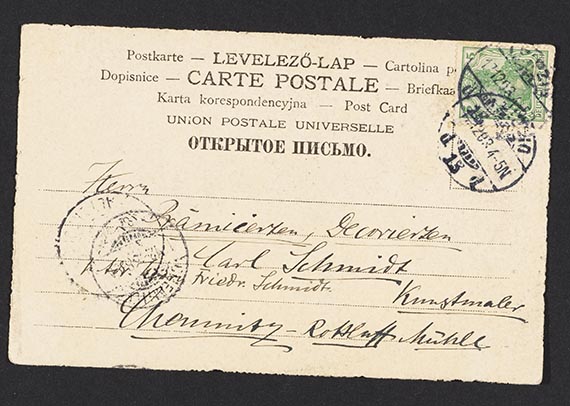 Postkarte — LEVELEZŐ-LAP — Cartolina p
Dopisnice — CARTE POSTALE — Briefkaa
Karta korespondencyjna — Post Card
UNION POSTALE UNIVERSELLE
ОТКРЫТОЕ ПИСЬМО.
Herrn
Prämiierten, Decorierten
Karl Schmidt
Friedr. Schmidt
Kunstmaler
Chemnitz - Rottluff Mühle